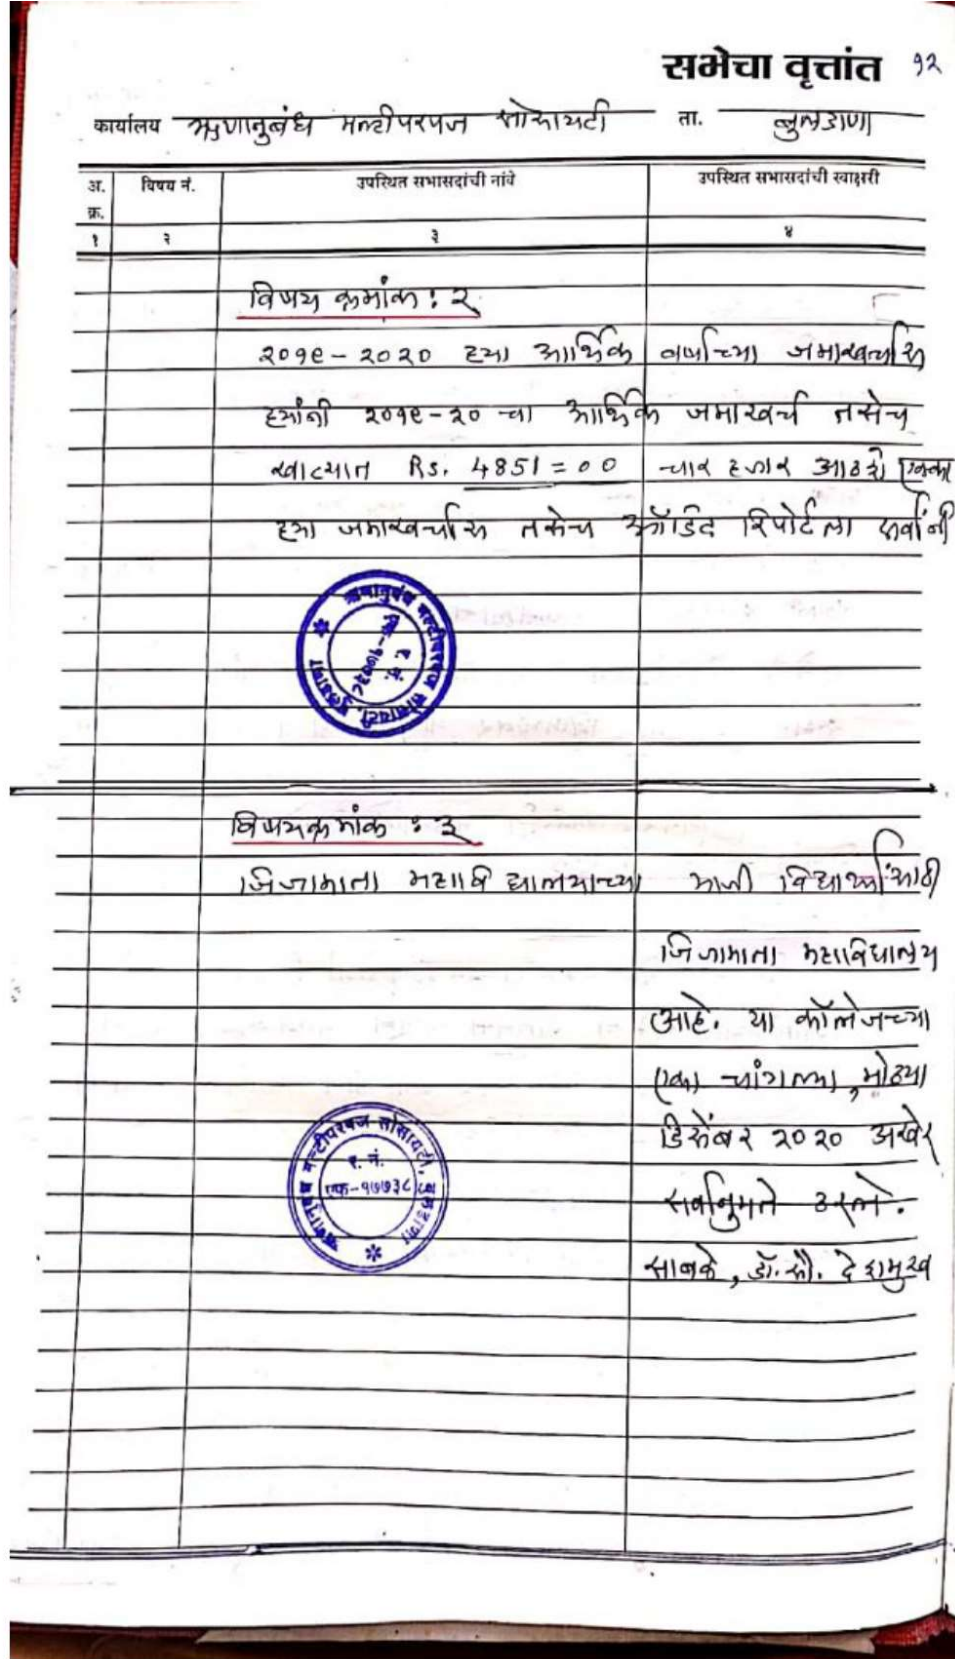 सभेचा वृत्तांत १२
कार्यालय ऋणानुबंध मल्टीपरपज सोसायटी ता. बुलडाणा
अ. क्र. विषय नं. उपस्थित सभासदांची नांवे उपस्थित सभासदांची स्वाक्षरी
१ २ ३ ४
विषय क्रमांक : २
२०१९-२०२० ह्या आर्थिक वर्षाच्या जमाखर्चास
ह्यांनी २०१९-२० चा आर्थिक जमाखर्च तसेच
खात्यात Rs. 4851=00 चार हजार आठशे एक्का
ह्या जमाखर्चास तसेच ऑडिट रिपोर्टला सर्वांनी
ऋणानुबंध मल्टीपरपज सोसायटी, बुलडाणा
र. नं.
एफ-१७७३८
विषय क्रमांक : ३
जिजामाता महाविद्यालयाच्या माजी विद्यार्थ्यांसाठी
जिजामाता महाविद्यालय
आहे. या कॉलेजच्या
एका चांगल्या, मोठ्या
डिसेंबर २०२० अखेर
सर्वानुमते ठरले.
साबळे, डॉ. सौ. देशमुख
ऋणानुबंध मल्टीपरपज सोसायटी, बुलडाणा
र. नं.
एफ-१७७३८